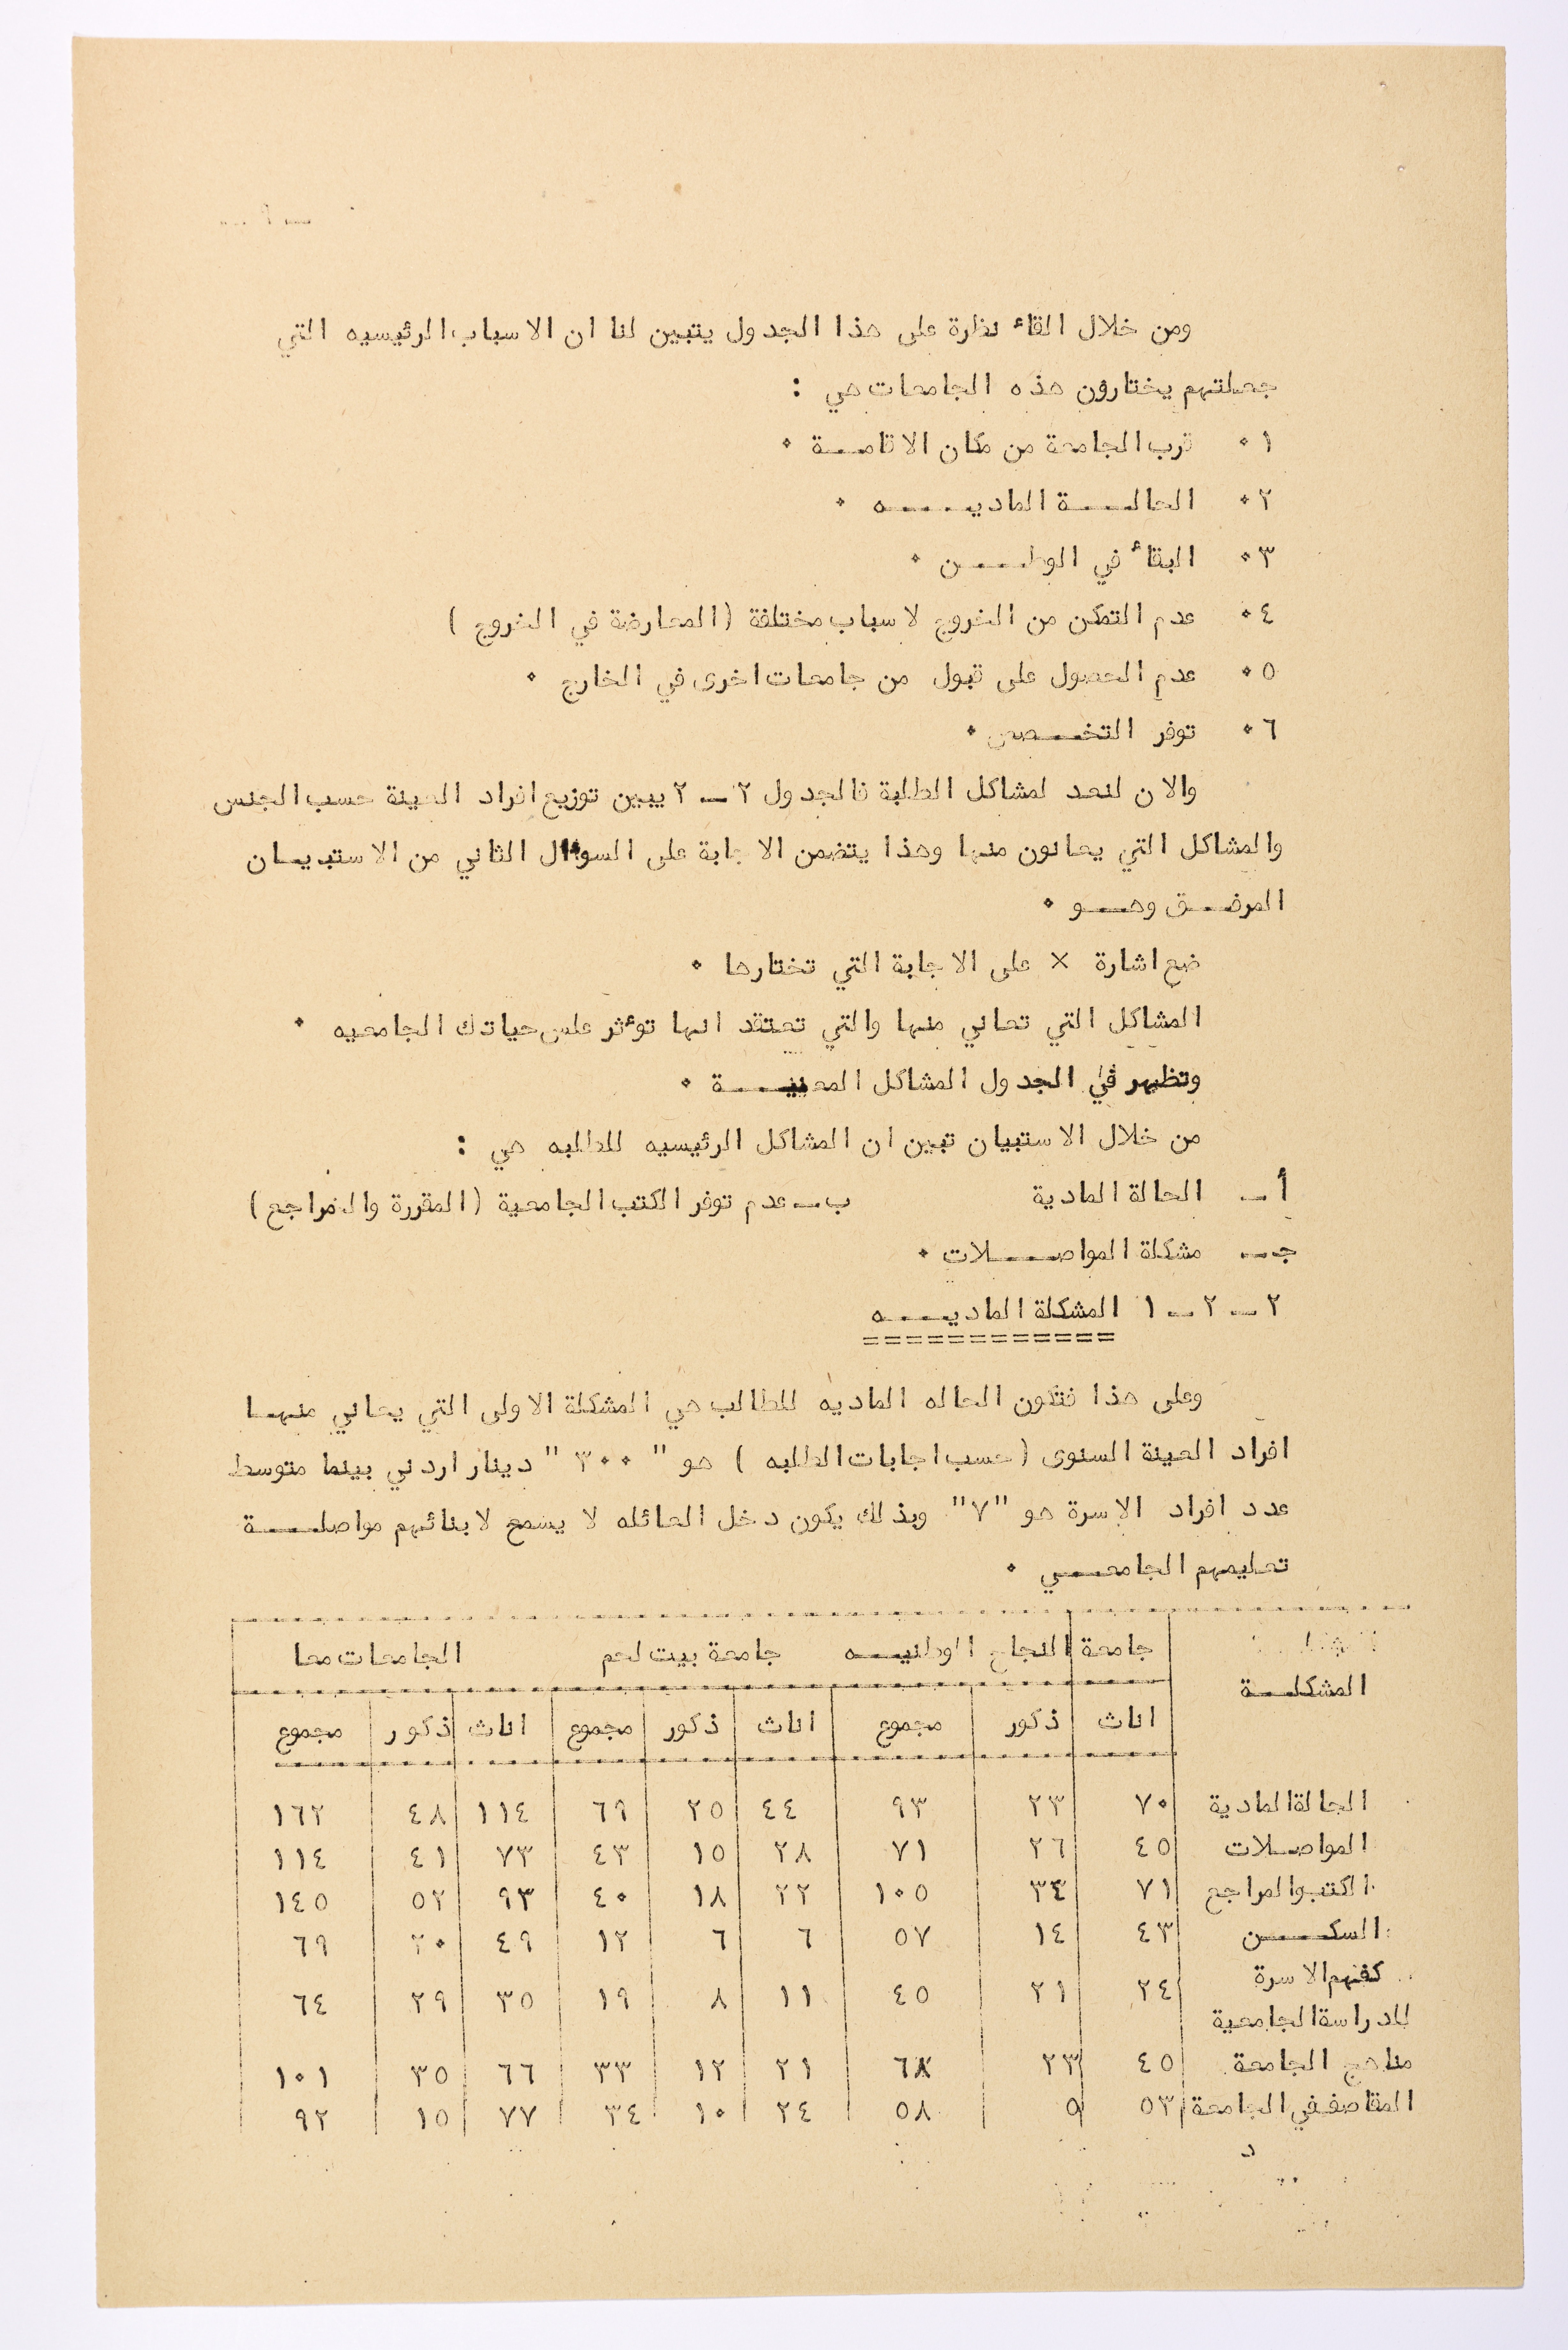 — ٩ —
ومن خلال القاء نظرة على هذا الجدول يتبين لنا ان الاسباب الرئيسيه التي
جعلتهم يختارون هذه الجامعات هي :
١٠ قرب الجامعة من مكان الاقامـــة ٠
٢٠ الحالـــة الماديـــه ٠
٣٠ البقاء في الوطـــن ٠
٤٠ عدم التمكن من الخروج لاسباب مختلفة (المعارضة في الخروج )
٥٠ عدم الحصول على قبول من جامعات اخرى في الخارج ٠
٦٠ توفر التخـــصص ٠
والان لنعد لمشاكل الطلبة فالجدول ٢ــ٢ يبين توزيع افراد العينة حسب الجنس
والمشاكل التي يعانون منها وهذا يتضمن الاجابة على السوءال الثاني من الاستبيـان
المرفـــق وهـــو ٠
ضع اشارة × على الاجابة التي تختارها ٠
المشاكل التي تعاني منها والتي تعتقد انها توءثر على حياتك الجامعيه ٠
وتظهر في الجدول المشاكل المعنيـــة ٠
من خلال الاستبيان تبين ان المشاكل الرئيسيه للطلبه هي :
أ ــ الحالة المادية ب ــ عدم توفر الكتب الجامعية (المقررة والمراجع)
جـ ــ مشكلة المواصـــلات ٠
٢ــ٢ــ١ المشكلة الماديـــه
============
وعلى هذا فتكون الحاله الماديه للطالب هي المشكلة الاولى التي يعاني منهـا
افراد العينة السنوى (حسب اجابات الطلبه ) هو " ٣٠٠ " دينار اردني بينما متوسط
عدد افراد الاسرة هو "٧" وبذلك يكون دخل العائله لا يسمح لابنائهم مواصلـــة
تعليمهم الجامعـــي ٠
المشكلـــة جامعة النجاح الوطنيـــه جامعة بيت لحم الجامعات معا
اناث ذكور مجموع اناث ذكور مجموع اناث ذكور مجموع
الحالة المادية ٧٠ ٢٣ ٩٣ ٤٤ ٢٥ ٦٩ ١١٤ ٤٨ ١٦٢
المواصـلات ٤٥ ٢٦ ٧١ ٢٨ ١٥ ٤٣ ٧٣ ٤١ ١١٤
الكتب والمراجع ٧١ ٣٤ ١٠٥ ٢٢ ١٨ ٤٠ ٩٣ ٥٢ ١٤٥
السكـــن ٤٣ ١٤ ٥٧ ٦ ٦ ١٢ ٤٩ ٢٠ ٦٩
الاسرة
للدراسة الجامعية ٢٤ ٢١ ٤٥ ١١ ٨ ١٩ ٣٥ ٢٩ ٦٤
مناهج الجامعة ٤٥ ٢٣ ٦٨ ٢١ ١٢ ٣٣ ٦٦ ٣٥ ١٠١
المقاصف في الجامعة ٥٣ ٥ ٥٨ ٢٤ ١٠ ٣٤ ٧٧ ١٥ ٩٢